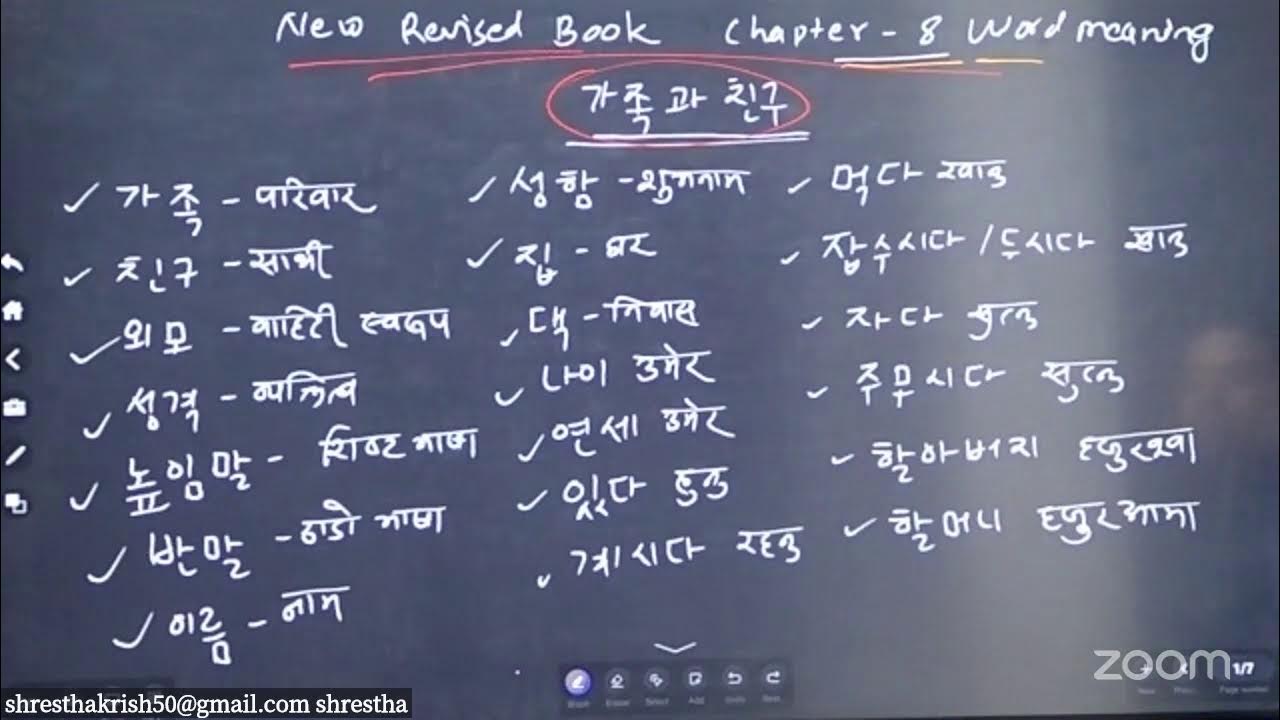 New Revised Book Chapter - 8 Word meaning
가족과 친구
✓ 가족 - परिवार
✓ 친구 - साथी
✓ 외모 - बाहिरी स्वरूप
✓ 성격 - व्यक्तित्व
✓ 높임말 - शिष्ट भाषा
✓ 반말 - ठाडो भाषा
✓ 이름 - नाम
✓ 성함 - शुभनाम
✓ 집 - घर
✓ 댁 - निवास
✓ 나이 उमेर
✓ 연세 उमेर
✓ 있다 हुनु
✓ 계시다 रहनु
✓ 먹다 खानु
✓ 잡수시다 / 드시다 खानु
✓ 자다 सुत्नु
✓ 주무시다 सुत्नु
✓ 할아버지 हजुरबुवा
✓ 할머니 हजुरआमा
zoom
1/7
shresthakrish50@gmail.com shrestha